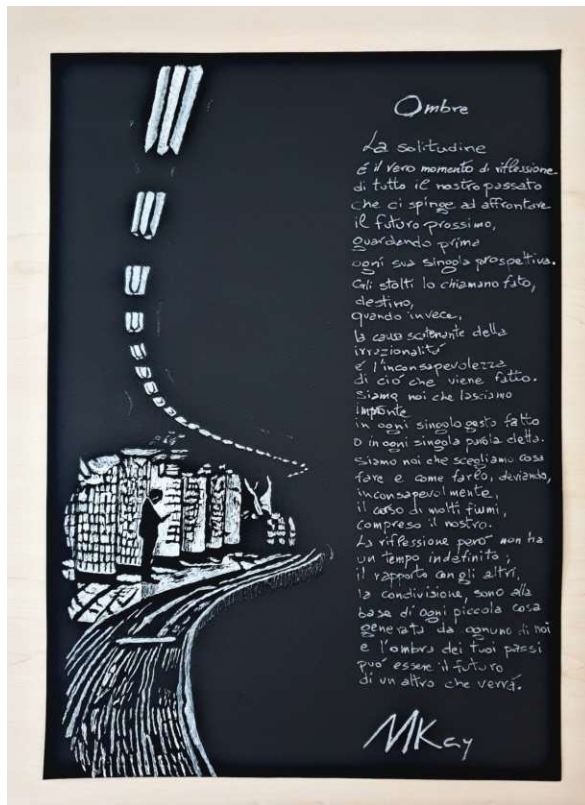 Ombre
La solitudine
é il vero momento di riflessione
di tutto il nostro passato
che ci spinge ad affrontare
il futuro prossimo,
guardando prima
ogni sua singola prospettiva.
Gli stolti lo chiamano fato,
destino,
quando invece,
la causa scatenante della
irrazionalitá
é l'inconsapevolezza
di ció che viene fatto.
Siamo noi che lasciamo
impronte
in ogni singolo gesto fatto
o in ogni singola parola detta.
Siamo noi che scegliamo cosa
fare e come farlo, deviando,
inconsapevolmente,
il corso di molti fiumi,
compreso il nostro.
La riflessione peró non ha
un tempo indefinito;
il rapporto con gli altri,
la condivisione, sono alla
base di ogni piccola cosa
generata da ognuno di noi
e l'ombra dei tuoi passi
puó essere il futuro
di un altro che verrá.
MKay